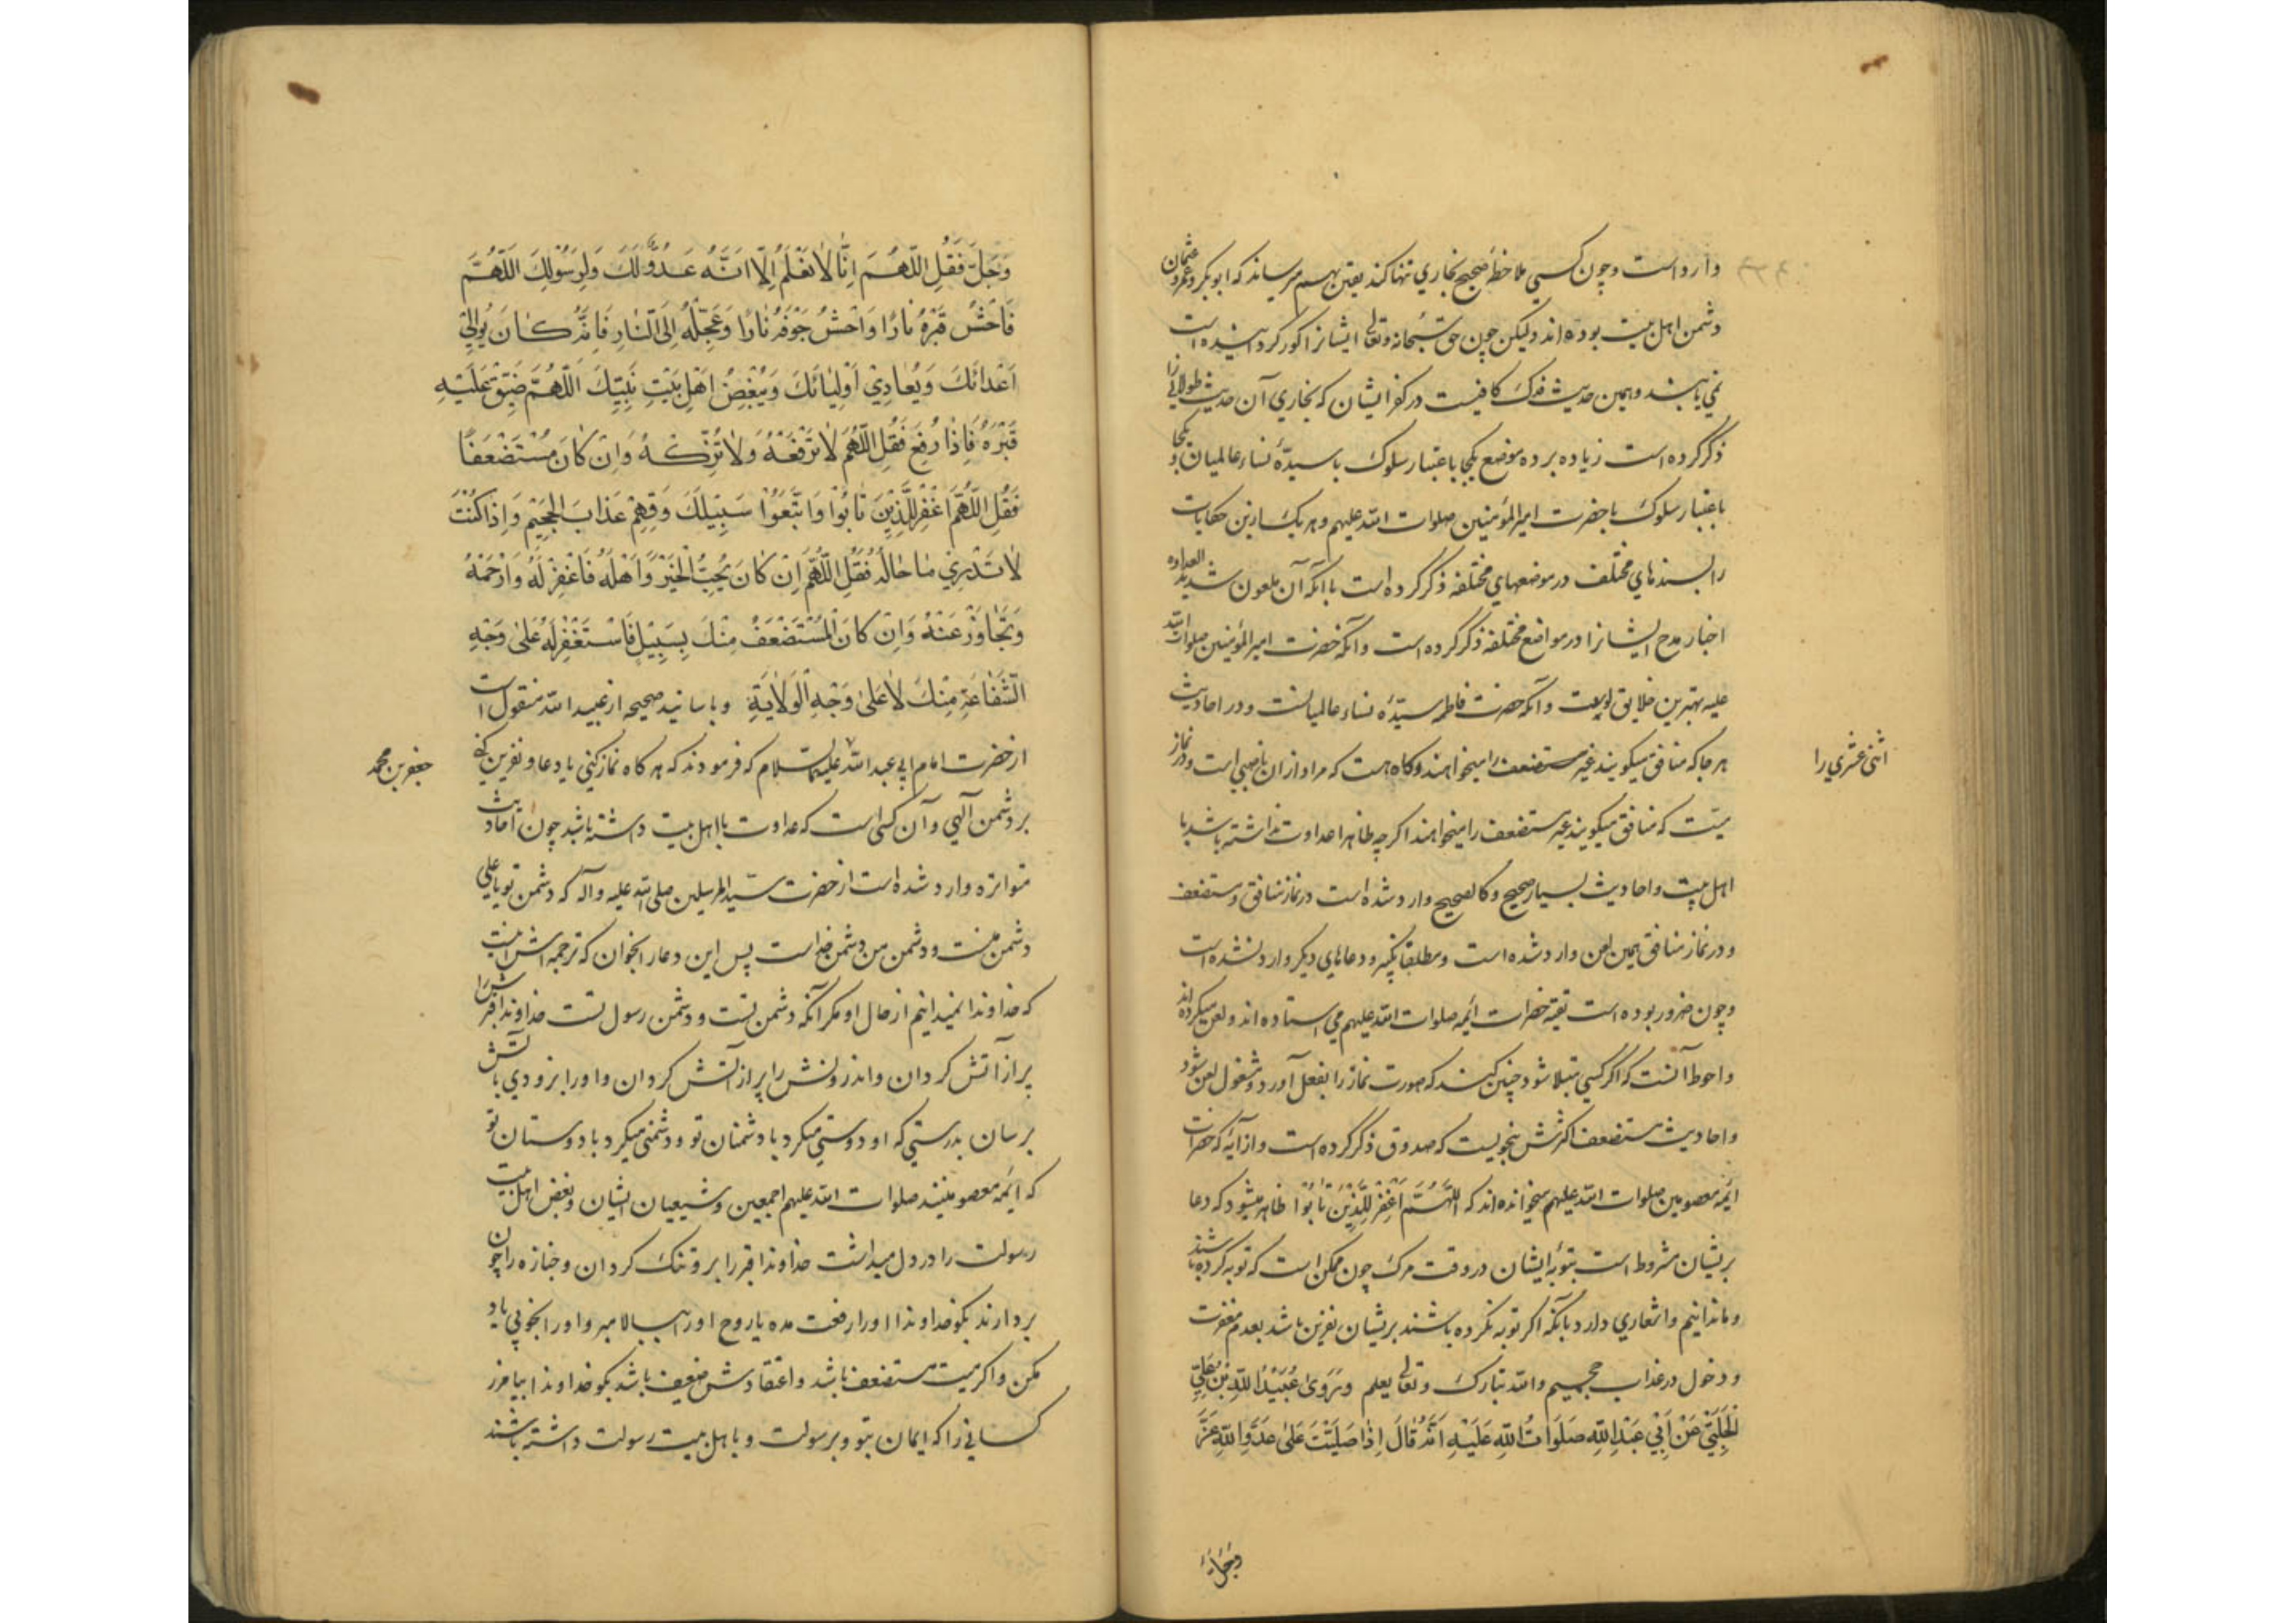 وارد است و چون کسی ملاحظهٔ صحیح بخاری تنها کند یقین بهم میرساند که ابو بکر و عمر و عثمان
دشمن اهل بیت بوده‌اند ولیکن چون حق سبحانه و تعالی ایشانرا کور کردانیده است
نمی یابند و همین حدیث فدک کافیست در کفر ایشان که بخاری آن حدیث طولانی را
ذکر کرده است زیاده بر ده موضع یکجا باعتبار سلوک با سیدهٔ نساء عالمیان و یکجا
باعتبار سلوک با حضرت امیر المؤمنین صلوات الله علیهم و هر یک از این حکایات
را بسندهای مختلف در موضعهای مختلفه ذکر کرده است با آنکه آن ملعون شدید العداوه
اخبار مدح ایشانرا در مواضع مختلفه ذکر کرده است و آنکه حضرت امیر المؤمنین صلوات الله
علیه بهترین خلایق بود و آنکه حضرت فاطمه سیدهٔ نساء عالمیانست و در احادیث
هر جا که منافق میکویند غیر مستضعف را میخواهند و کاه هست که مراد از ان ناصبی است و در نماز
اثنی عشری را
میت که منافق میکویند غیر مستضعف را میخواهند اکرچه ظاهرا عداوت نداشته باشد با
اهل بیت و احادیث بسیار صحیح و کالصحیح وارد شده است در نماز منافق و مستضعف
و در نماز منافق همین لعن وارد شده است و مطلقا تکبیر و دعاهای دیکر وارد نشده است
و چون ضرور بوده است تقیه حضرات ائمه صلوات الله علیهم می استاده‌اند و لعن میکرده اند
و احوط آنست که اکر کسی مبتلا شود چنین کند که صورت نماز را بفعل آورد و مشغول لعن شود
و احادیث مستضعف اکثرش بنحویست که صدوق ذکر کرده است و از آیهٔ که حضرات
ائمه معصومین صلوات الله علیهم میخوانده‌اند که اللّهُمَّ اغْفِرْ لِلَّذِیْنَ تَابُوْا ظاهر میشود که دعا
بر ایشان مشروط است بتوبهٔ ایشان در وقت مرک چون ممکن است که توبه کرده باشند
و ما ندانیم و اشعاری دارد بآنکه اکر توبه نکرده باشند بر ایشان نفرین باشد بعدم مغفرت
و دخول در عذاب جحیم و الله تبارک و تعالی یعلم وَ رَوَیٰ عُبَیْدُ اللّٰهِ بْنُ عَلِیٍّ
الْحَلَبِیُّ عَنْ اَبِیْ عَبْدِ اللّٰهِ صَلَوَاتُ اللّٰهِ عَلَیْهِ اَنَّهُ قَالَ اِذَا صَلَّیْتَ عَلیٰ عَدُوِّ اللّٰهِ عَزَّ
وَجَلَّ
وَجَلَّ فَقُلِ اللّٰهُمَّ اِنَّا لَا نَعْلَمُ اِلَّا اَنَّهُ عَدُوٌّ لَکَ وَلِرَسُوْلِکَ اَللّٰهُمَّ
فَاحْشُ قَبْرَهُ نَارًا وَاحْشُ جَوْفَهُ نَارًا وَعَجِّلْهُ اِلَی النَّارِ فَاِنَّهُ کَانَ یُوَالِیْ
اَعْدَائَکَ وَیُعَادِیْ اَوْلِیَائَکَ وَیُبْغِضُ اَهْلَ بَیْتِ نَبِیِّکَ اَللّٰهُمَّ ضَیِّقْ عَلَیْهِ
قَبْرَهُ فَاِذَا رُفِعَ فَقُلِ اللّٰهُمَّ لَا تَرْفَعْهُ وَلَا تُزَکِّهُ وَاِنْ کَانَ مُسْتَضْعَفًا
فَقُلِ اللّٰهُمَّ اغْفِرْ لِلَّذِیْنَ تَابُوْا وَاتَّبَعُوْا سَبِیْلَکَ وَقِهِمْ عَذَابَ الْجَحِیْمِ وَاِذَا کُنْتَ
لَا تَدْرِیْ مَا حَالُهُ فَقُلِ اللّٰهُمَّ اِنْ کَانَ یُحِبُّ الْخَیْرَ وَاَهْلَهُ فَاغْفِرْ لَهُ وَارْحَمْهُ
وَتَجَاوَزْ عَنْهُ وَاِنْ کَانَ الْمُسْتَضْعَفُ مِنْکَ بِسَبِیْلٍ فَاسْتَغْفِرْ لَهُ عَلیٰ وَجْهِ
الشَّفَاعَةِ مِنْکَ لَا عَلیٰ وَجْهِ الْوَلَایَةِ و باسانید صحیحه از عبید الله منقول است
از حضرت امام ابی عبد الله علیهما السلام که فرمودند که هر کاه نماز کنی یا دعا و نفرین کنی
جعفر بن محمد
بر دشمن آلهی و آن کسی است که عداوت با اهل بیت داشته باشد چون احادیث
متواتره وارد شده است از حضرت سید المرسلین صلی الله علیه و آله که دشمن تو یا علی
دشمن منست و دشمن من دشمن خداست پس این دعا را بخوان که ترجمه اش اینست
که خداوندا نمیدانیم از حال او مکر آنکه دشمن تست و دشمن رسول تست خداوندا قبرش را
پر از آتش کردان و اندرونش را پر از آتش کردان و او را بزودی بآتش
برسان بدرستی که او دوستی میکرد با دشمنان تو و دشمنی میکرد با دوستان تو
که ائمه معصومینند صلوات الله علیهم اجمعین و شیعیان ایشان و بغض اهل بیت
رسولت را در دل میداشت خداوندا قبر را برو تنک کردان و جنازه را چون
بردارند بکو خداوندا او را رفعت مده یا روح او را ببالا مبر و او را بخوبی یاد
مکن و اکر میت مستضعف باشد و اعتقادش ضعیف باشد بکو خداوندا بیامرز
کسانی را که ایمان بتو و برسولت و باهل بیت رسولت داشته باشند